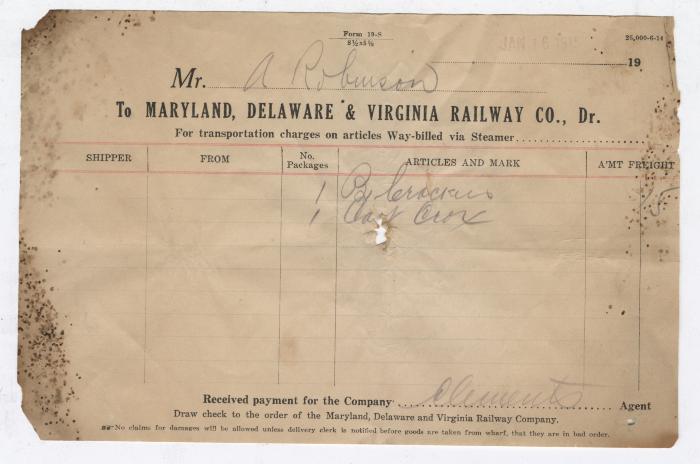 Form 19-S
8½x5½
25,000-6-14
19
Mr. A Robinson
To MARYLAND, DELAWARE & VIRGINIA RAILWAY CO., Dr.
For transportation charges on articles Way-billed via Steamer
SHIPPER FROM No. Packages ARTICLES AND MARK A'MT FREIGHT
1 Bx Crackers 15
1
Received payment for the Company Clements Agent
Draw check to the order of the Maryland, Delaware and Virginia Railway Company.
No claims for damages will be allowed unless delivery clerk is notified before goods are taken from wharf, that they are in bad order.